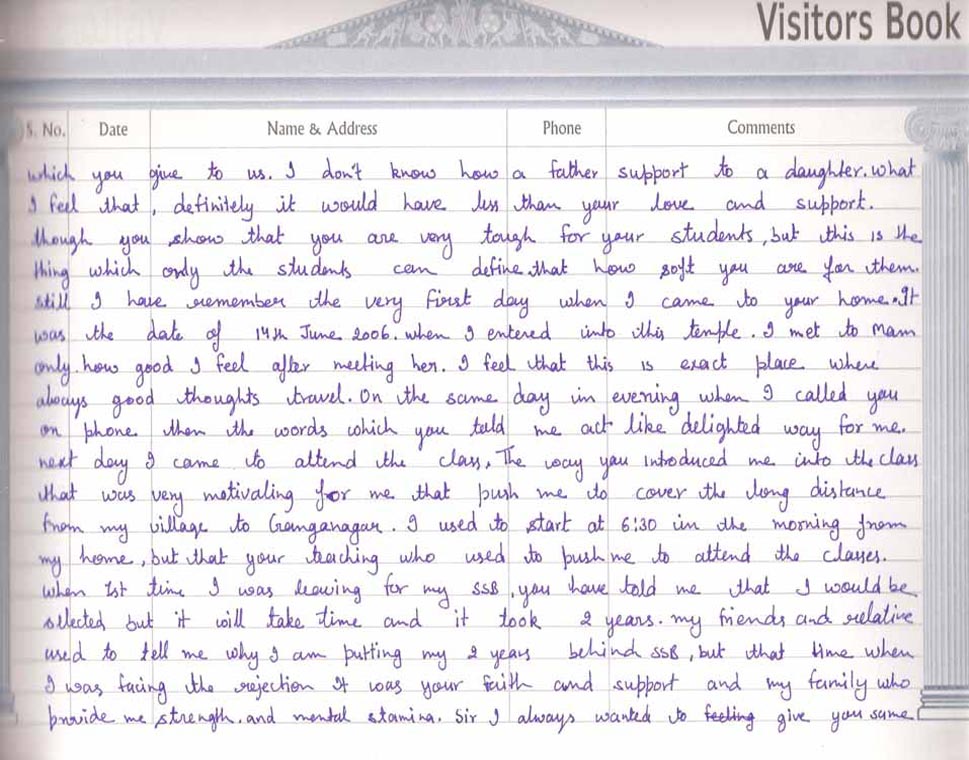 Visitors Book
S. No. Date Name & Address Phone Comments
which you give to us. I don't know how a father support to a daughter. what
I feel that, definitely it would have less than your love and support.
though you show that you are very tough for your students, but this is the
thing which only the students can define that how soft you are for them.
still I have remember the very first day when I came to your home. It
was the date of 14th June 2006. when I entered into this temple. I met to Mam
only. how good I feel after meeting her. I feel that this is exact place where
always good thoughts travel. On the same day in evening when I called you
on phone then the words which you told me act like delighted way for me.
next day I came to attend the class, The way you introduced me into the class
that was very motivaling for me that push me to cover the long distance
from my village to Ganganagar. I used to start at 6:30 in the morning from
my home, but that your teaching who used to push me to attend the classes.
when 1st time I was leaving for my SSB, you have told me that I would be
sellected but it will take time and it took 2 years. my friends and relative
used to tell me why I am putting my 2 years behind SSB, but that time when
I was facing the rejection It was your faith and support and my family who
provide me strength. and mental stamina. Sir I always wanted to feeling give you same